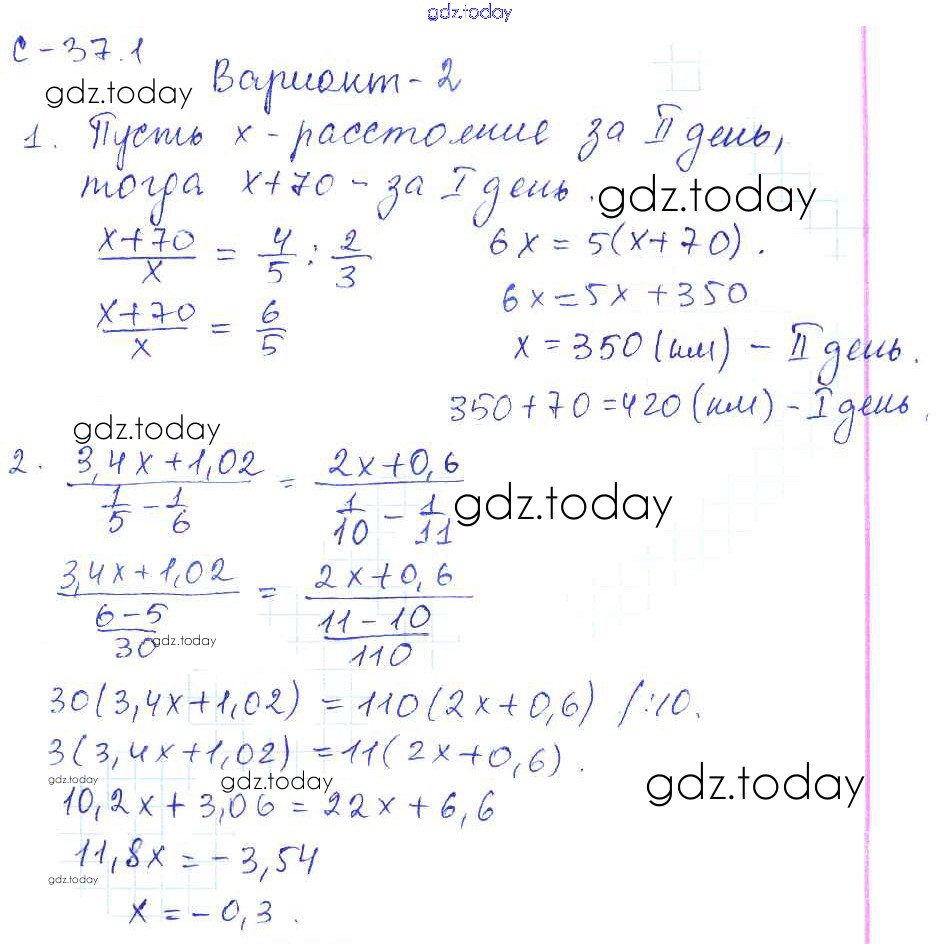 gdz.today
С-37.1
gdz.today
Вариант-2
1. Пусть x - расстояние за II день,
тогда x+70 - за I день.
gdz.today
(x+70)/x = 4/5 : 2/3
6x = 5(x+70).
(x+70)/x = 6/5
6x=5x+350
x=350(км) - II день.
350+70=420(км) - I день.
gdz.today
2. (3,4x+1,02)/(1/5 - 1/6) = (2x+0,6)/(1/10 - 1/11)
gdz.today
(3,4x+1,02)/((6-5)/30) = (2x+0,6)/((11-10)/110)
gdz.today
30(3,4x+1,02) = 110(2x+0,6) /:10.
3(3,4x+1,02) = 11(2x+0,6).
gdz.today
gdz.today
gdz.today
10,2x+3,06=22x+6,6
11,8x=-3,54
gdz.today
x=-0,3.